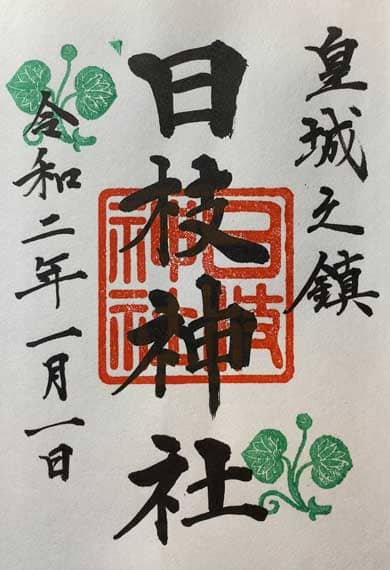 皇城之鎮
日枝神社
日枝神社
令和二年一月一日